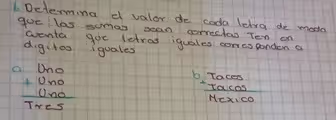 1. Determina el valor de cada letra de modo
que las sumas sean correctas Ten en
cuenta que letras iguales corresponden a
digitos iguales
a. Uno
+ Uno
Uno
Tres
b. Tacos
+ Tacos
Mexico